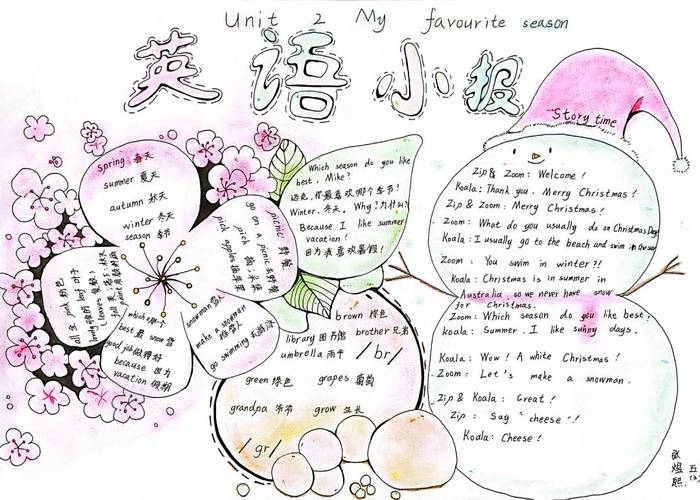 Unit 2 My favourite season
英语小报
Story time
spring 春天
summer 夏天
autumn 秋天
winter 冬天
season 季节
picnic 野餐
go on a picnic 去野餐
pick 摘;采集
pick apples 摘苹果
snowman 雪人
make a snowman
堆雪人
go swimming 去游泳
which 哪一个
best 最 snow 雪
good job 做得好
because 因为
vacation 假期
all 全 pink 粉色
lovely 可爱的 leaf 叶子
(leaves 复数)
fall 秋天
paint 用颜料画
Which season do you like
best, Mike?
迈克,你最喜欢哪个季节?
Winter. 冬天。 Why? 为什么?
Because I like summer
vacation!
因为我喜欢暑假!
brown 棕色
library 图书馆 brother 兄弟
umbrella 雨伞 /br/
green 绿色 grapes 葡萄
grandpa 爷爷 grow 生长
/gr/
Zip & Zoom: Welcome!
Koala: Thank you. Merry Christmas!
Zip & Zoom: Merry Christmas!
Zoom: What do you usually do on Christmas Day?
Koala: I usually go to the beach and swim in the sea.
Zoom: You swim in winter?!
Koala: Christmas is in summer in
Australia, so we never have snow
for Christmas.
Zoom: Which season do you like best?
koala: Summer. I like sunny days.
Koala: Wow! A white Christmas!
Zoom: Let's make a snowman.
Zip & Koala: Great!
Zip: Say "cheese"!
Koala: Cheese!